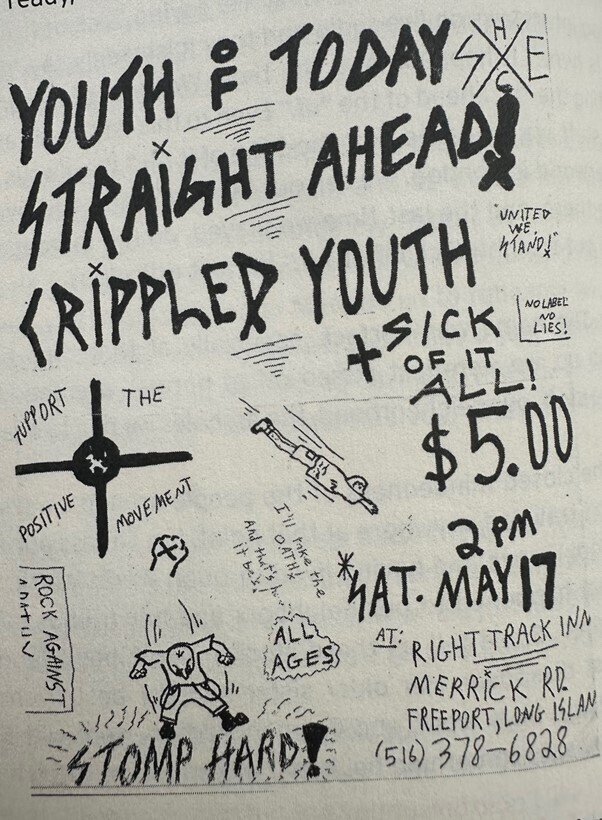 ready,
YOUTH OF TODAY
S H E C
STRAIGHT AHEAD!
"UNITED
WE
STAND!"
CRIPPLED YOUTH
+ SICK
OF IT
ALL!
NO LABEL
NO
LIES!
$5.00
SUPPORT THE
POSITIVE MOVEMENT
I'll take the
OATH!
And that's
it be!
2 PM
*SAT. MAY 17
ROCK AGAINST
ALL
AGES
AT: RIGHT TRACK INN
MERRICK RD.
FREEPORT, LONG ISLAN
(516) 378-6828
STOMP HARD!